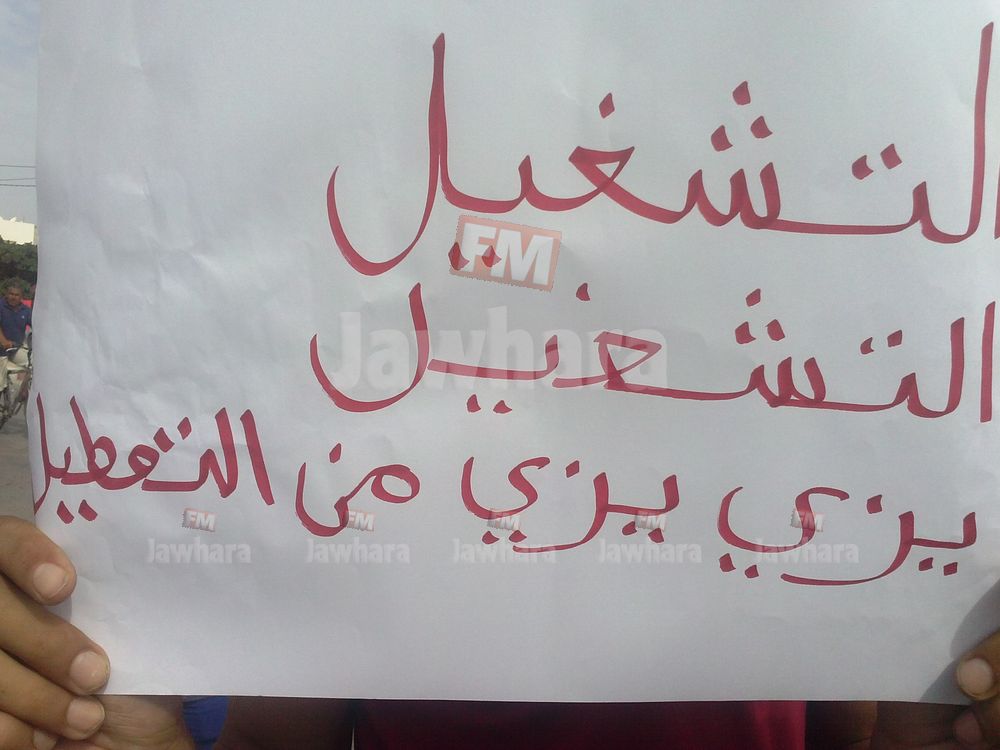 التشغيل
التشغيل
يزي يزي من التعطيل
FM
Jawhara
FM FM FM FM FM
Jawhara Jawhara Jawhara Jawhara Jawhara